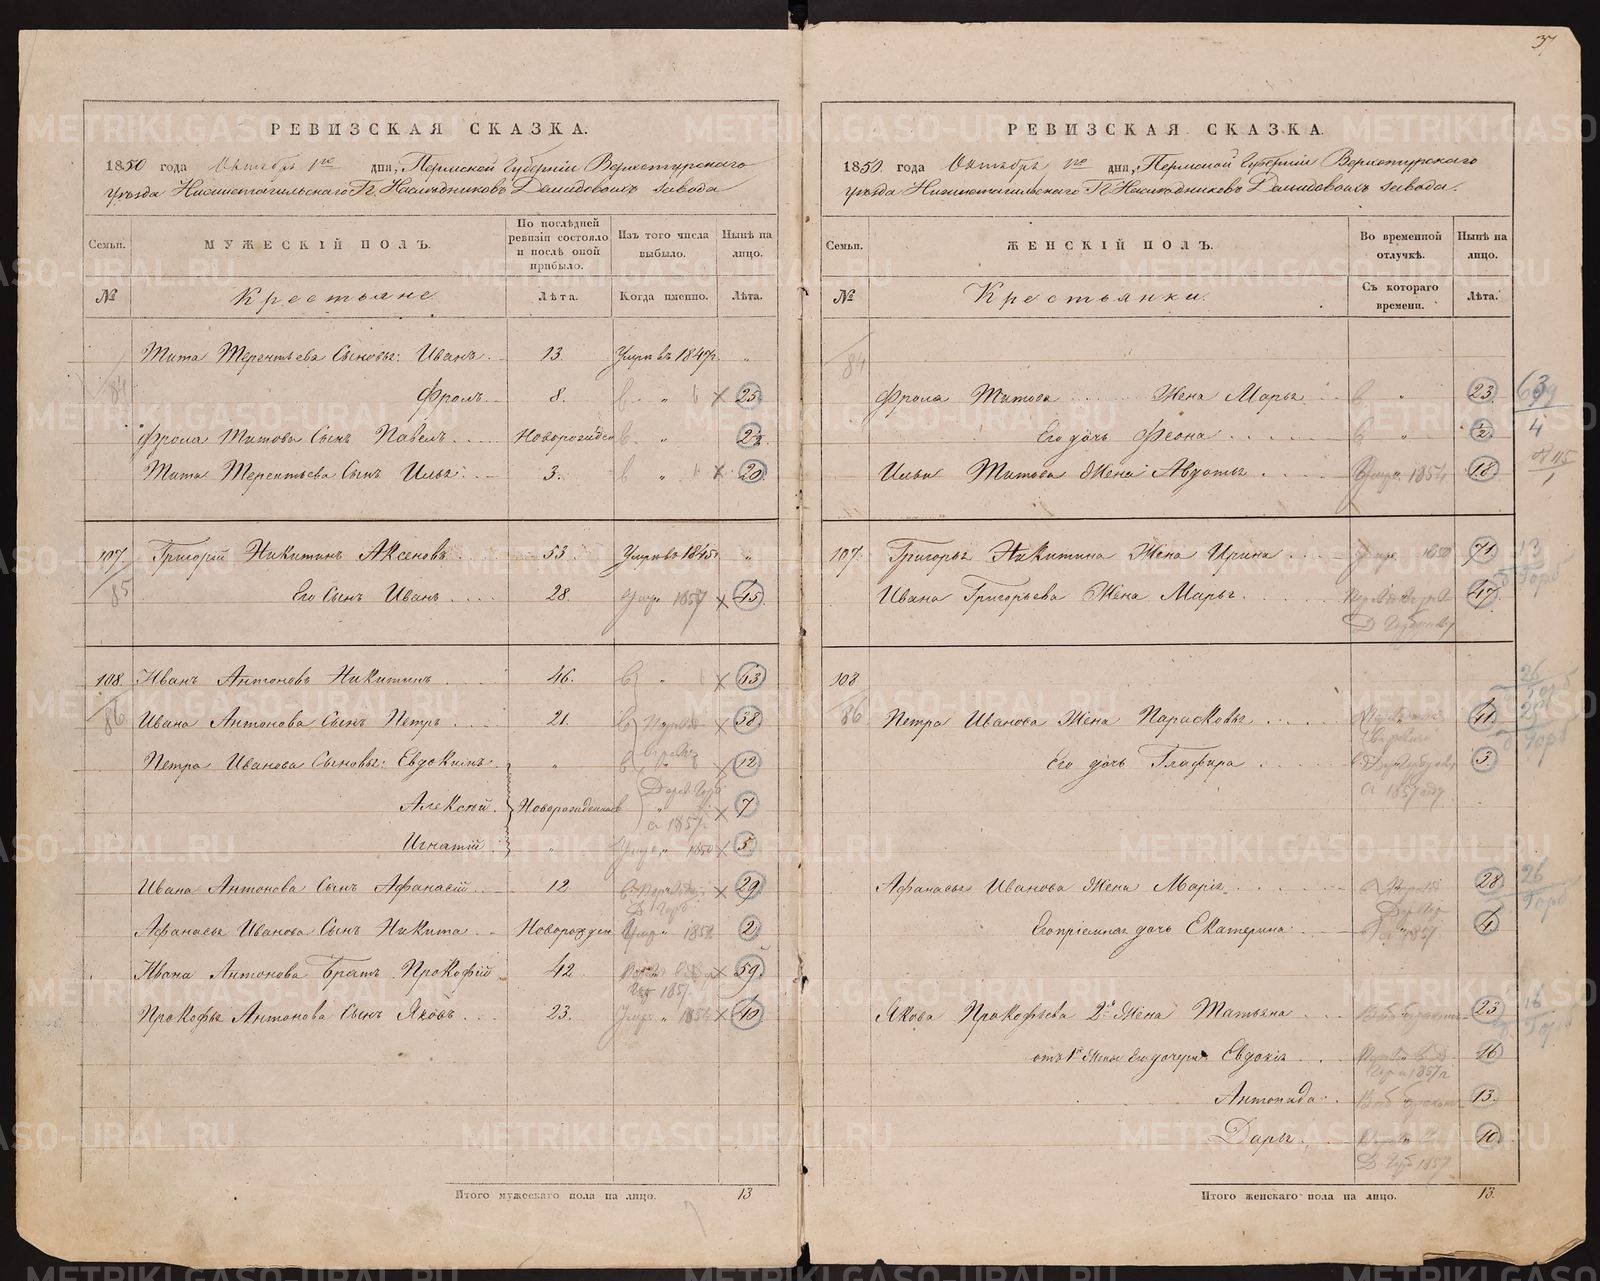 37
РЕВИЗСКАЯ СКАЗКА.
1850 года Октября 1го дня, Пермской Губернiи Верхотурскаго
уѣзда Нижнетагильскаго Гг. Наслѣдниковъ Демидовыхъ завода
Семьи. МУЖЕСКIЙ ПОЛЪ. По послѣдней ревизiи состояло и послѣ оной прибыло. Изъ того числа выбыло. Нынѣ на лицо.
№ Крестьяне Лѣта. Когда именно. Лѣта.
84
Тита Терентьева Сыновья: Иванъ 13. Умръ въ 1847г. "
Фролъ 8. " 25
Фрола Титова Сынъ Павелъ Новорожден " 2½
Тита Терентьева Сынъ Илья 3. " 20
107. Григорiй Никитинъ Аксеновъ 53. Умръ въ 1845г. "
85
Его Сынъ Иванъ 28. Умръ 1857 45
108. Иванъ Антоновъ Никитинъ 46. " 63
86 Ивана Антонова Сынъ Петръ 21. 38
Петра Иванова Сыновья: Евдокимъ " 12
Алексѣй Новорожденные " 7
1857
Игнатiй " 1850 5
Ивана Антонова Сынъ Афанасiй 12 29
Афанасья Иванова Сынъ Никита Новорожден Умръ " 2
Ивана Антонова Братъ Прокофiй 42 59
1857
Прокофья Антонова Сынъ Яковъ 23. Умръ " 40
Итого мужескаго пола на лицо. 13
РЕВИЗСКАЯ СКАЗКА.
1850 года Октября 1го дня, Пермской Губернiи Верхотурскаго
уѣзда Нижнетагильскаго Гг. Наслѣдниковъ Демидовыхъ завода.
Семьи. ЖЕНСКIЙ ПОЛЪ. Во временной отлучкѣ. Нынѣ на лицо.
№ Крестьянки. Съ котораго времени. Лѣта.
84
Фрола Титова Жена Марья " 23
Его дочь Феона " ½
4
Ильи Титова Жена Авдотья Умр. 1854 18
107. Григорья Никитина Жена Ирина 1850 71
13
Ивана Григорьева Жена Марья 47
108
86 Петра Иванова Жена Парасковья 41
26
Его дочь Глафира 3
1857 году
Афанасья Иванова Жена Марiя 28
26
Его прiемная дочь Екатерина 1857 4
Якова Прокофьева 2я Жена Татьяна 23
16
отъ 1й Жены его дочери Евдокiя 16
1857г
Антонида 13.
Дарья 10
1857
Итого женскаго пола на лицо. 13.
METRIKI.GASO-URAL.RU